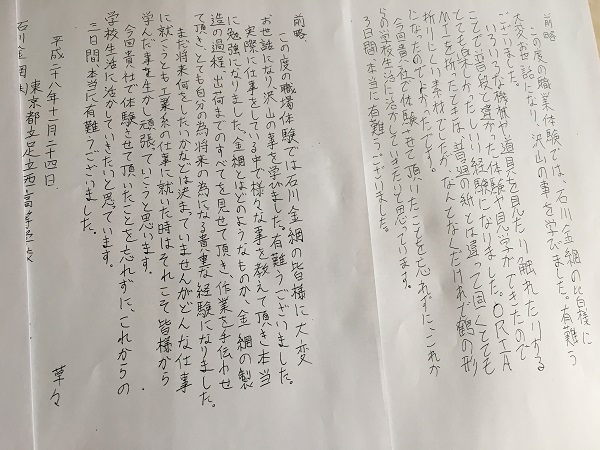 前略
この度の職業体験では、石川金網の皆様に
大変お世話になり、沢山の事を学びました。有難う
ございました。
いろいろな機械や道具を見たり触れたりする
ことで普段と違かった体験や見学ができたので
とても楽しかったしいい経験になりました。ORIA
MIを折ったときは普通の紙とは違って固くてとても
折りにくい素材でしたが、なんとなくだけれど鶴の形
になったのでよかったです。
今回貴社で体験させて頂けたことを忘れずに、これか
らの学校生活に活かしていきたいと思っています。
3日間、本当に有難うございました。
前略
この度の職場体験では石川金網の皆様に大変
お世話になり沢山の事を学びました。有難うございました。
実際に仕事をしている中で様々な事を教えて頂き本当
に勉強になりました。金網とはどのようなものか、金網の製
造の過程、出荷までのすべてを見せて頂き、作業を手伝わせ
て頂き、とても自分の為、将来の為になる貴重な経験になりました。
まだ将来何をしたいかなどは決まっていませんがどんな仕事
に就こうとも工業系の仕事に就いた時はそれこそ皆様から
学んだ事を生かし頑張っていこうと思います。
今回貴社で体験させて頂いたことを忘れずに、これからの
学校生活に活かしていきたいと思っています。
三日間、本当に有難うございました。
草々
平成二十八年十一月二十四日
東京都立足立西高等学校
石川金網㈱